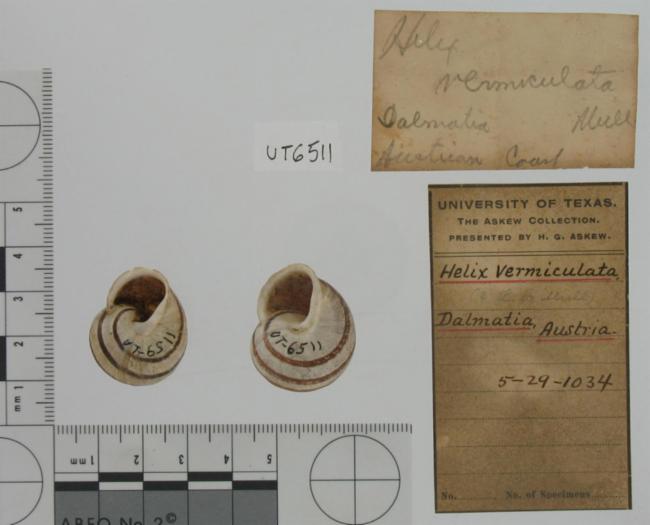 Helix
vermiculata
Dalmatia Mull
Austrian Coast
UT6511
UNIVERSITY OF TEXAS.
THE ASKEW COLLECTION.
PRESENTED BY H. G. ASKEW.
Helix Vermiculata.
Dalmatia, Austria.
5-29-1034
No. No. of Specimens
UT-6511
UT-6511
5
4
3
2
mm 1
1 mm 2 3 4 5
ABFO No. 2©